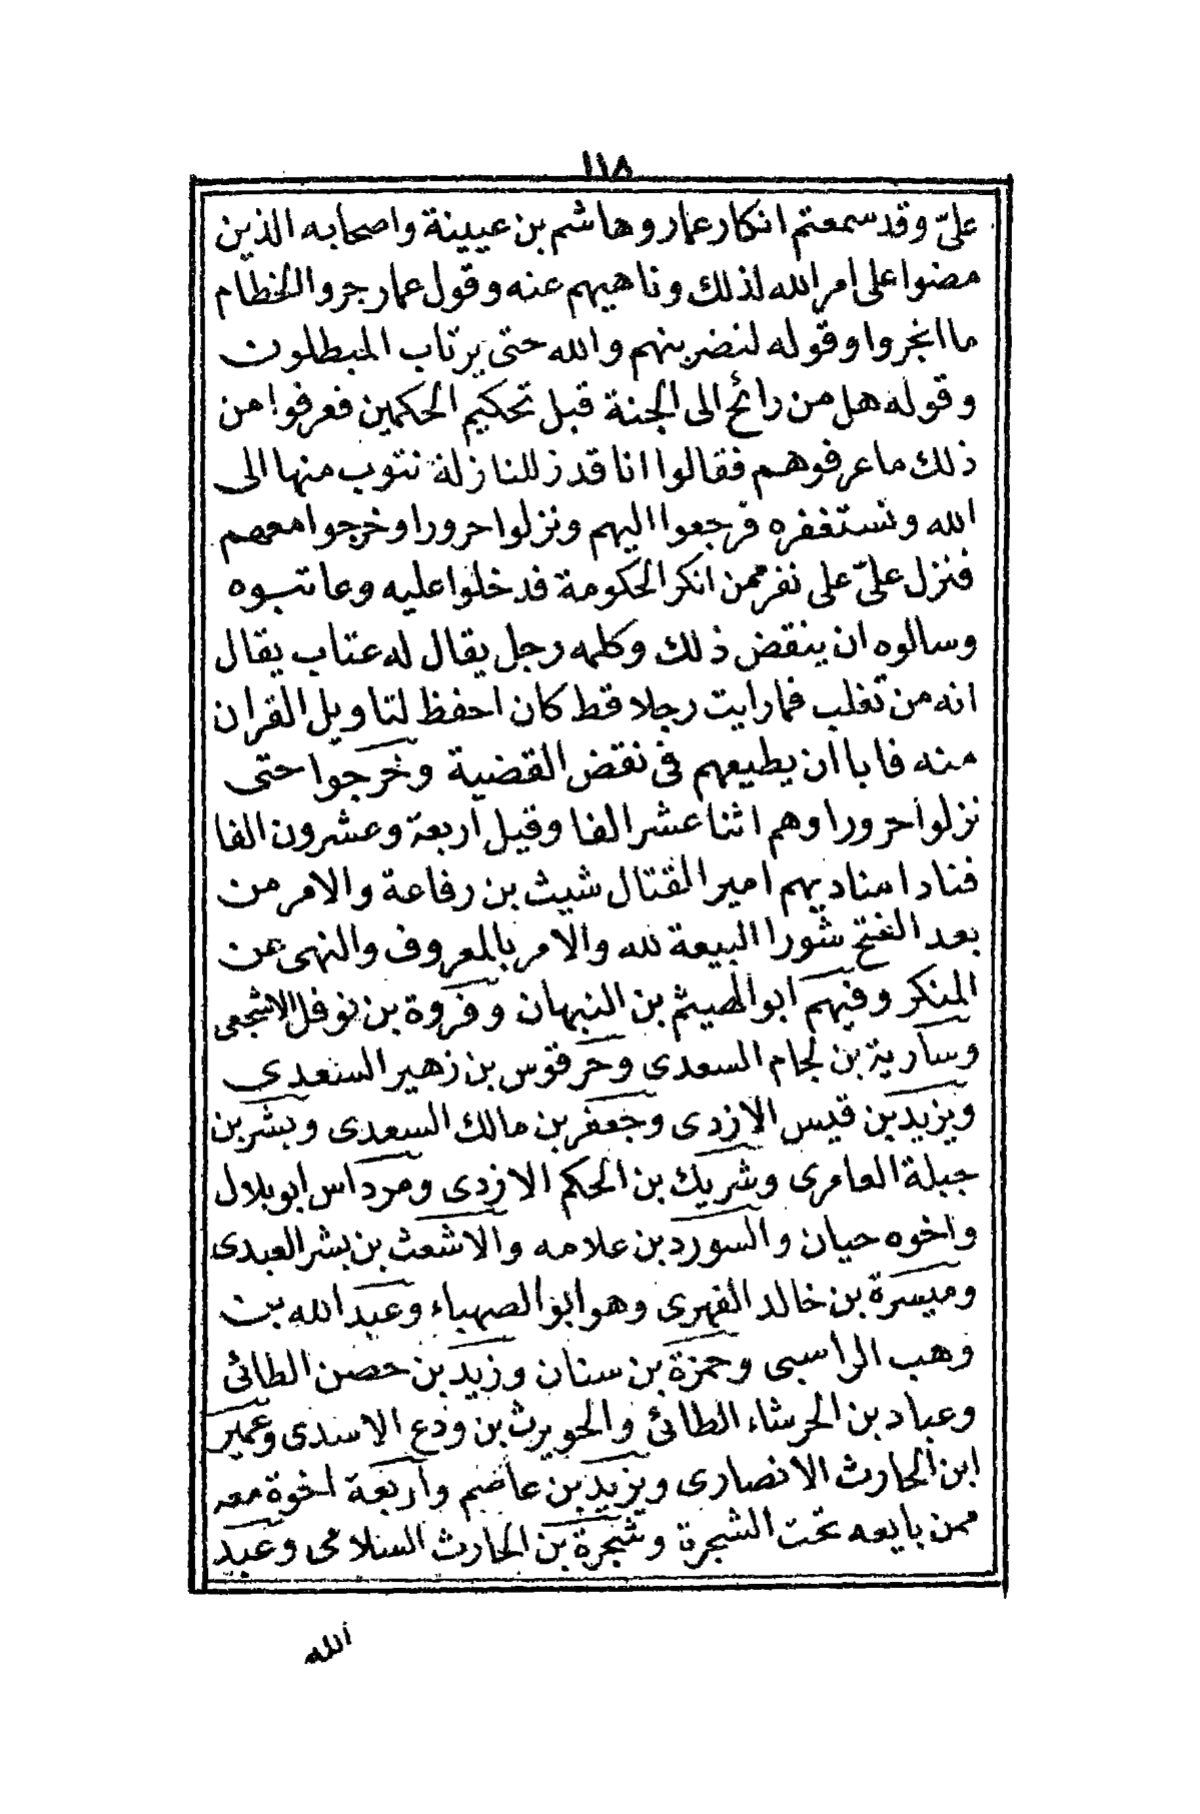 ١١٨
علىّ وقد سمعتم انكار عمار وهاشم بن عيينة واصحابه الذين
مضوا على امر الله لذلك وناهيهم عنه وقول عمار جروا الخظام
ما انجروا وقوله لنضربنهم والله حتى يرتاب المبطلون
وقوله هل من رائح الى الجنة قبل تحكيم الحكمين فعرفوا من
ذلك ما عرفوهم فقالوا انا قد زللنا زلة نتوب منها الى
الله ونستغفره فرجعوا اليهم ونزلوا حرورا وخرجوا معهم
فنزل علىّ على نفر ممن انكر الحكومة فدخلوا عليه وعاتبوه
وسالوه ان ينقض ذلك وكلمه رجل يقال له عتاب يقال
انه من تغلب فما رايت رجلا قط كان احفظ لتاويل القران
منه فابا ان يطيعهم فى نقض القضية وخرجوا حتى
نزلوا حرورا وهم اثنا عشر الفا وقيل اربعة وعشرون الفا
فنادا مناديهم امير القتال شيث بن رفاعة والامر من
بعد الفتح شورا البيعة لله والامر بالمعروف والنهى عن
المنكر وفيهم ابو الهيثم بن النبهان وفروة بن نوفل الاشجعى
وسارية بن لجام السعدى وحرقوس بن زهير السعدى
ويزيد بن قيس الازدى وجعفر بن مالك السعدى وبشر بن
جبلة العامرى وشريك بن الحكم الازدى ومرداس ابو بلال
واخوه حيان والسورد بن علامه والاشعث بن بشر العبدى
وميسرة بن خالد الفهرى وهو ابو الصهباء وعبد الله بن
وهب الراسبى وحمزة بن سنان وزيد بن حصن الطائى
وعباد بن الحرشاء الطائى والحويرث بن ودع الاسدى وعمير
ابن الحارث الانصارى ويزيد بن عاصم واربعة اخوة معه
ممن بايعه تحت الشجرة وشجرة بن الحارث السلامى وعبد
الله